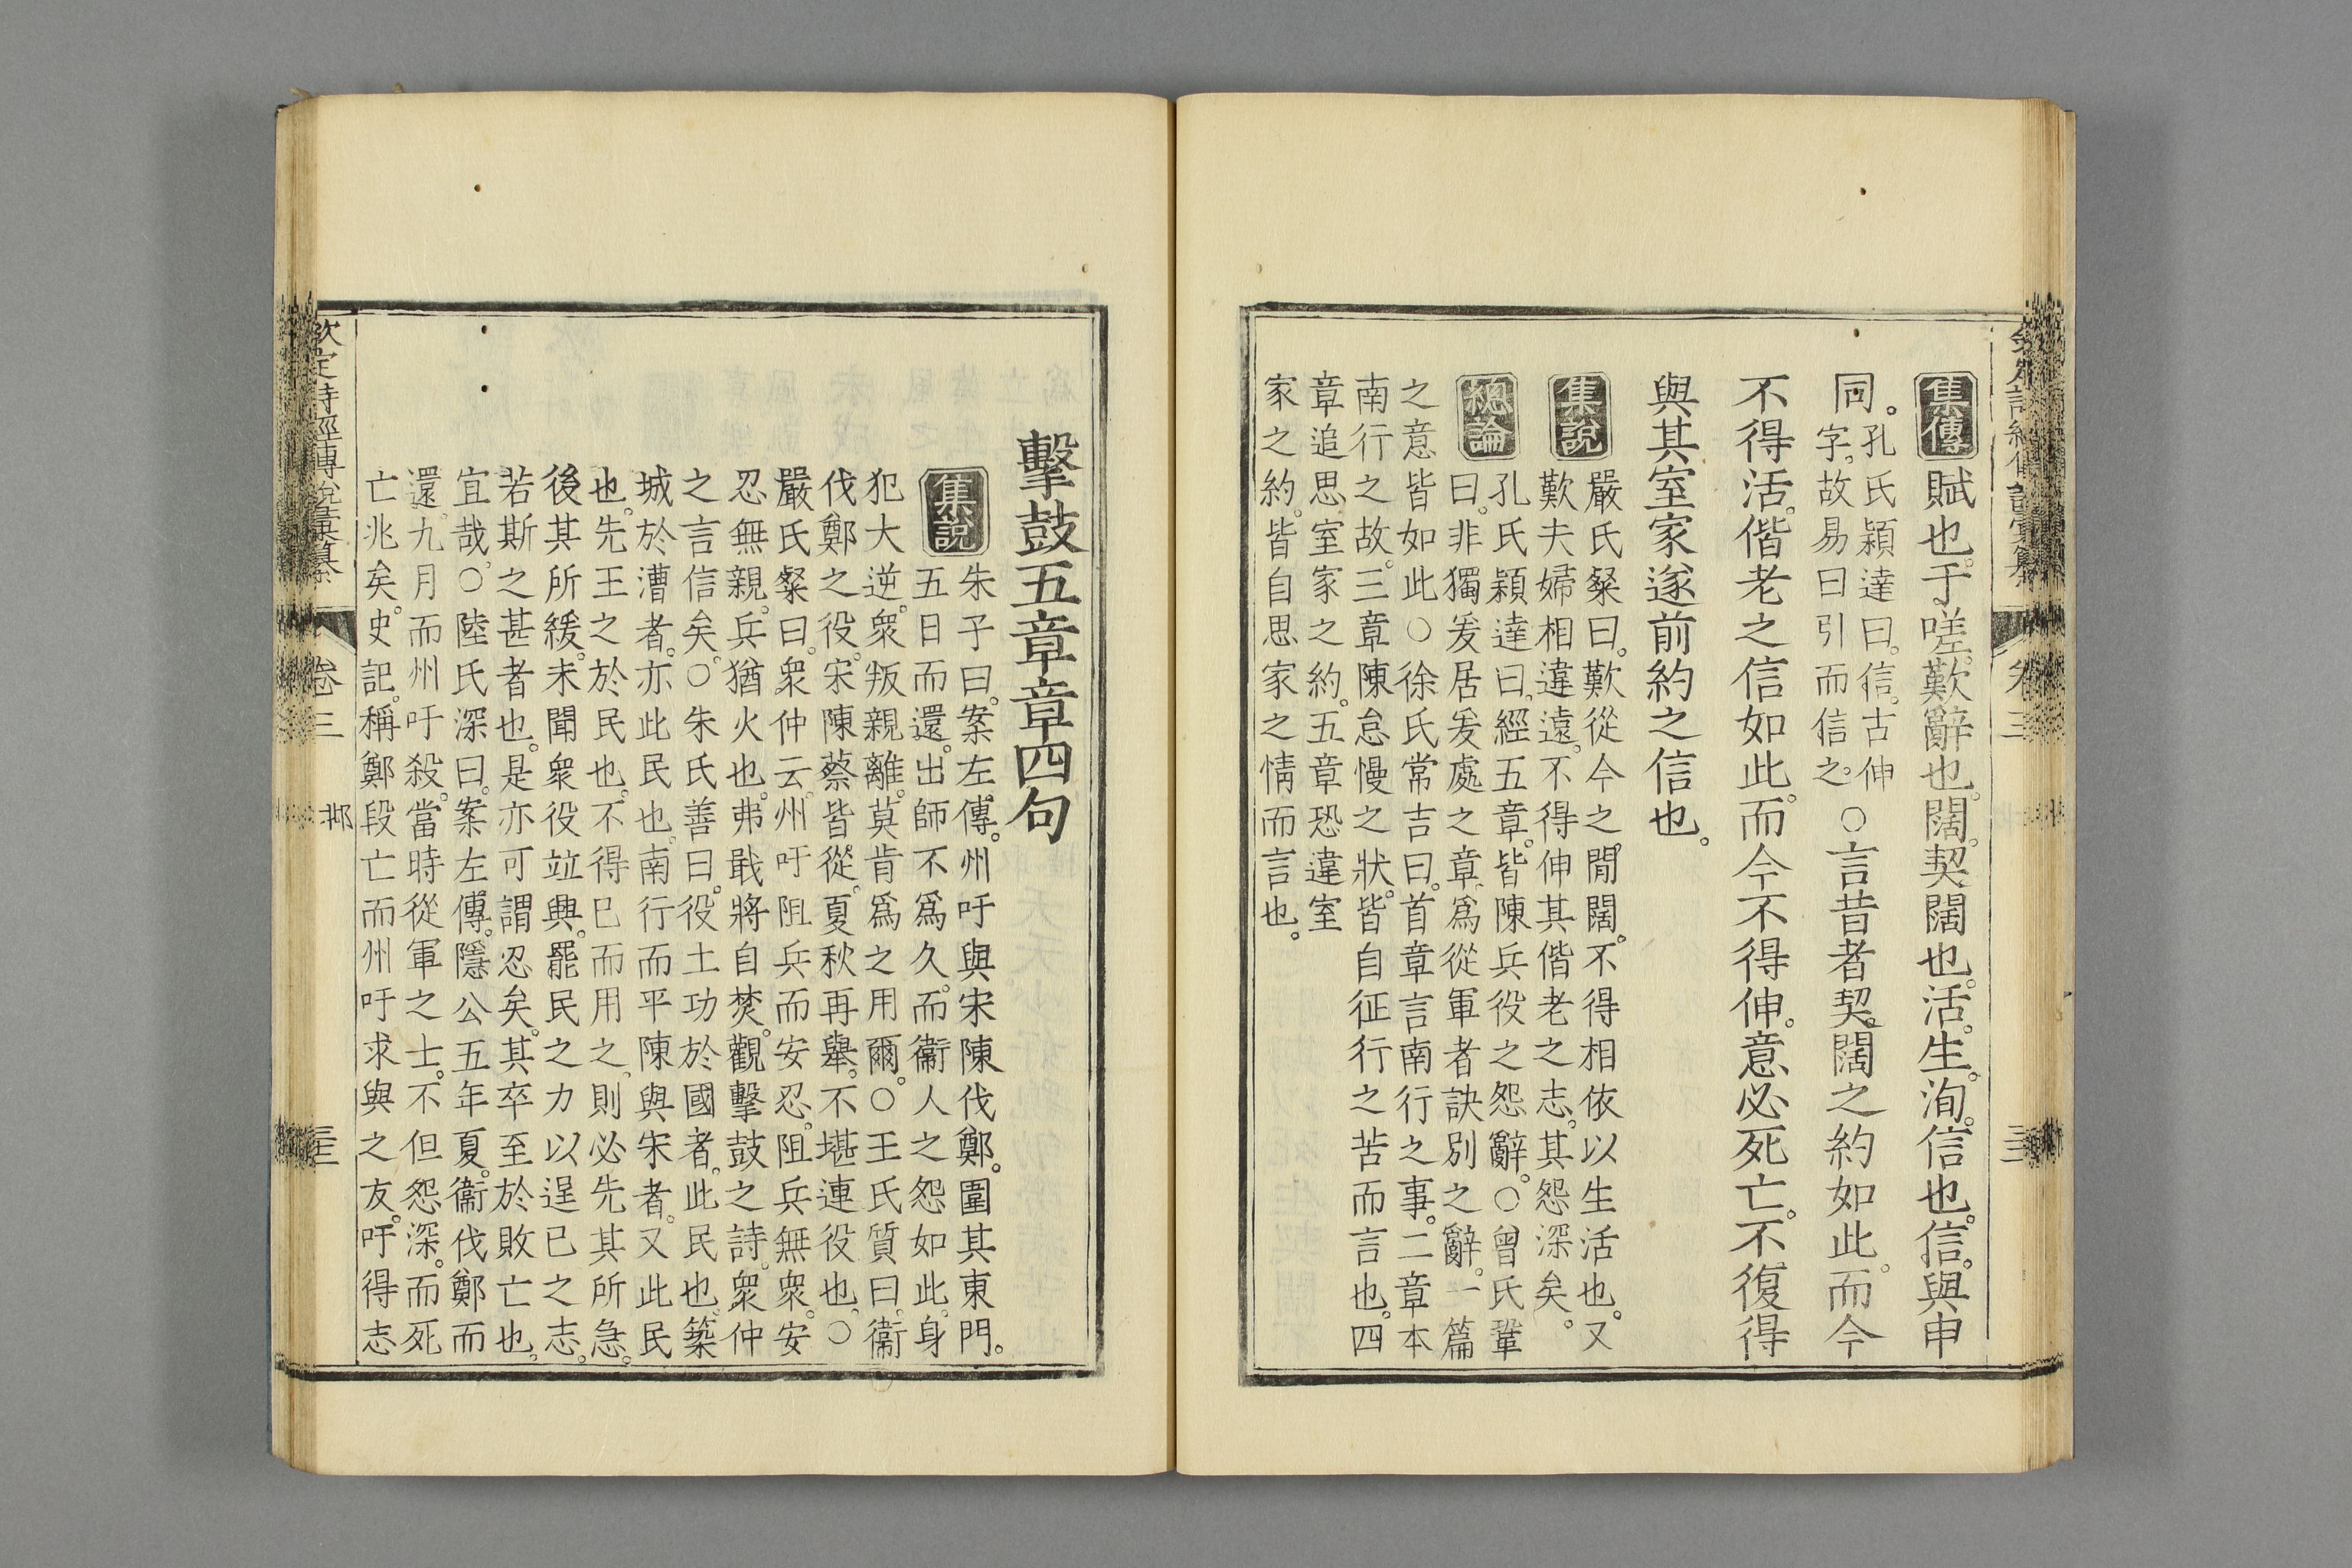 集傳賦也。于嗟。歎辭也。闊。契闊也。活。生。洵。信也。信。與申
同。孔氏穎達曰。信。古伸字。故易曰引而信之。○言昔者契闊之約如此。而今
不得活。偕老之信如此。而今不得伸。意必死亡。不復得
與其室家遂前約之信也。
集說嚴氏粲曰。歎從今之閒闊。不得相依以生活也。又
歎夫婦相違遠。不得伸其偕老之志。其怨深矣。
總論孔氏穎達曰。經五章。皆陳兵役之怨辭。○曾氏鞏
曰。非獨爰居爰處之章。為從軍者訣別之辭。一篇
之意皆如此○徐氏常吉曰。首章言南行之事。二章本
南行之故。三章陳怠慢之狀。皆自征行之苦而言也。四
章追思室家之約。五章恐違室
家之約。皆自思家之情而言也。
卷三
擊鼓五章章四句
集說朱子曰。案左傳。州吁與宋陳伐鄭。圍其東門。
五日而還。出師不為久。而衞人之怨如此。身
犯大逆。衆叛親離。莫肯為之用爾。○王氏質曰。衞
伐鄭之役。宋陳蔡皆從。夏秋再舉。不堪連役也。○
嚴氏粲曰。衆仲云。州吁阻兵而安忍。阻兵無衆。安
忍無親。兵猶火也。弗戢將自焚。觀擊鼓之詩。衆仲
之言信矣。○朱氏善曰。役土功於國者。此民也。築
城於漕者。亦此民也。南行而平陳與宋者。又此民
也。先王之於民也。不得已而用之。則必先其所急。
後其所緩。未聞衆役竝興。罷民之力以逞已之志。
若斯之甚者也。是亦可謂忍矣。其卒至於敗亡也。
宜哉。○陸氏深曰。案左傳。隱公五年夏。衞伐鄭而
還。九月而州吁殺。當時從軍之士。不但怨深。而死
亡兆矣。史記。稱鄭段亡而州吁求與之友。吁得志
欽定詩經傳說彙纂 卷三 邶